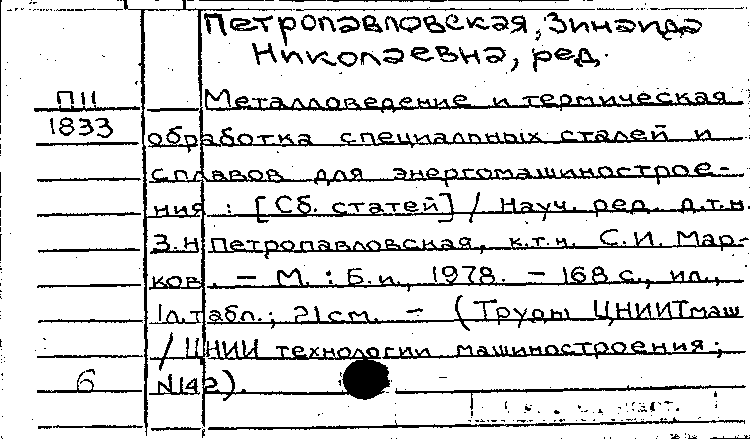 Петропавловская, Зинаида
Николаевна, ред.
П11 Металловедение и термическая
1833 обработка специальных сталей и
сплавов для энергомашинострое-
ния : [Сб. статей] / Науч. ред. д.т.н.
З.Н Петропавловская, к.т.н. С.И. Мар-
ков. – М. : Б.и., 1978. – 168 с., ил.,
1л.табл.; 21см. – (Труды ЦНИИТмаш
/ ЦНИИ технологии машиностроения;
6 №142).